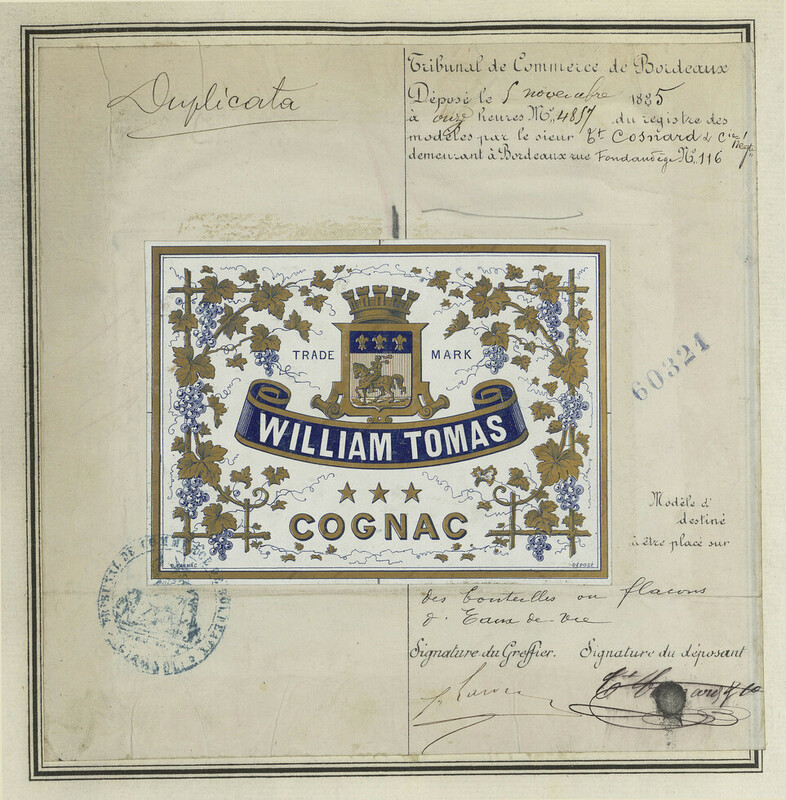 Duplicata
Tribunal de Commerce de Bordeaux
Déposé le 5 novembre 1885
à onze heures No. 4857 du registre des
modèles par le sieur Ct Cosnard & Cie
demeurant à Bordeaux rue Fondaudège No. 116
TRADE MARK
WILLIAM TOMAS
COGNAC
DÉPOSÉ
60321
Modèle d'
destiné
à être placé sur
des bouteilles ou flacons
d'Eaux de vie
Signature du Greffier. Signature du déposant
TRIBUNAL DE COMM
BORDEAUX